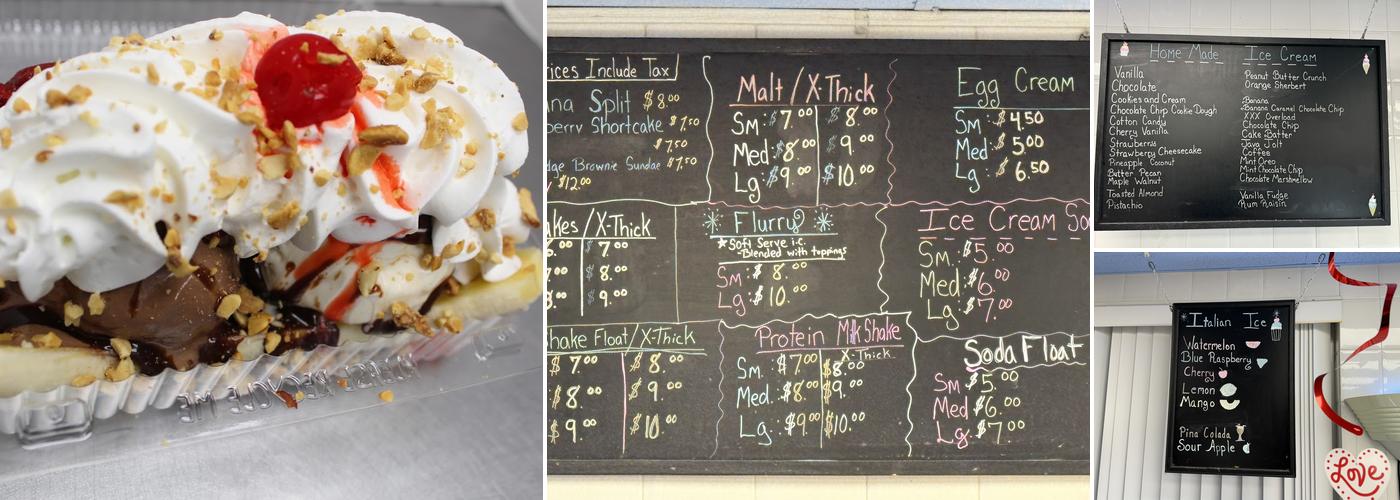 ices Include Tax
ana Split $8.00
berry Shortcake $7.50
$7.50
dge Brownie Sundae $7.50
$12.00
Malt / X-Thick
Sm: $7.00 $8.00
Med: $8.00 $9.00
Lg: $9.00 $10.00
Egg Cream
Sm: $4.50
Med: $5.00
Lg: $6.50
akes / X-Thick
6.00 $7.00
$8.00
$9.00
Flurry
*Soft Serve i.c.
-Blended with toppings
Sm: $8.00
Lg: $10.00
Ice Cream So
Sm: $5.00
Med: $6.00
Lg: $7.00
hake Float / X-Thick
$7.00 $8.00
$8.00 $9.00
$9.00 $10.00
Protein Milk Shake
X-Thick
Sm. $7.00 $8.00
Med: $8.00 $9.00
Lg: $9.00 $10.00
Soda Float
Sm: $5.00
Med: $6.00
Lg: $7.00
Home Made Ice Cream
Vanilla
Chocolate
Cookies and Cream
Chocolate Chip Cookie Dough
Cotton Candy
Cherry Vanilla
Strawberry Cheesecake
Pineapple Coconut
Butter Pecan
Maple Walnut
Toasted Almond
Pistachio
Peanut Butter Crunch
Orange Sherbert
Banana
Banana Caramel Chocolate Chip
XXX Overload
Chocolate Chip
Cake Batter
Java Jolt
Coffee
Mint Oreo
Mint Chocolate Chip
Chocolate Marshmellow
Vanilla Fudge
Rum Raisin
Italian Ice
Watermelon
Blue Raspberry
Cherry
Lemon
Mango
Pina Colada
Sour Apple
Love